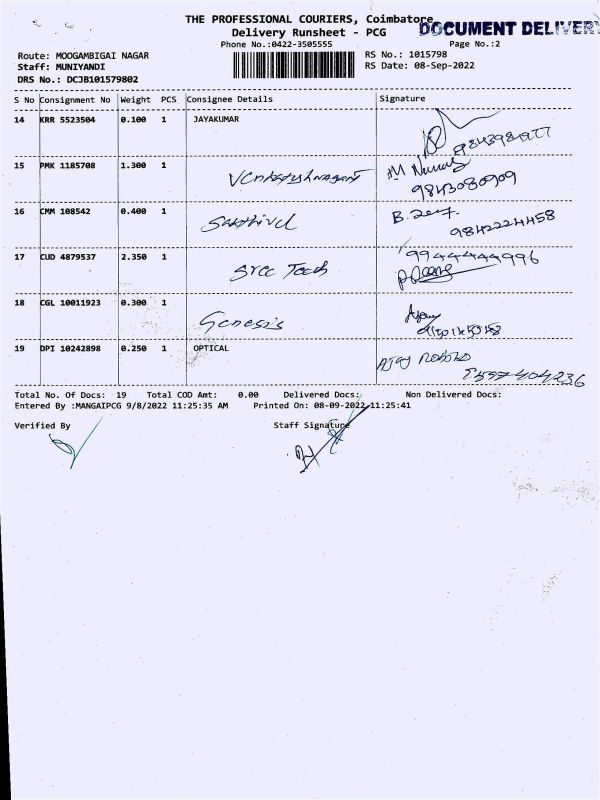 THE PROFESSIONAL COURIERS, Coimbatore
DOCUMENT DELIVERY
Delivery Runsheet - PCG
Phone No.:0422-3505555
Page No.:2
Route: MOOGAMBIGAI NAGAR
RS No.: 1015798
Staff: MUNIYANDI
RS Date: 08-Sep-2022
DRS No.: DCJB101579802
S No Consignment No Weight PCS Consignee Details Signature
14 KRR 5523504 0.100 1 JAYAKUMAR
15 PMK 1185708 1.300 1
9843080909
16 CMM 108542 0.400 1 Sakthivel
9842224458
17 CUD 4879537 2.350 1 Sree Tech
9944444996
18 CGL 10011923 0.300 1 Genesis
Ajay
19 DPI 10242898 0.250 1 OPTICAL
AJAY
Total No. Of Docs: 19 Total COD Amt: 0.00 Delivered Docs: Non Delivered Docs:
Entered By :MANGAIPCG 9/8/2022 11:25:35 AM Printed On: 08-09-2022 11:25:41
Verified By Staff Signature